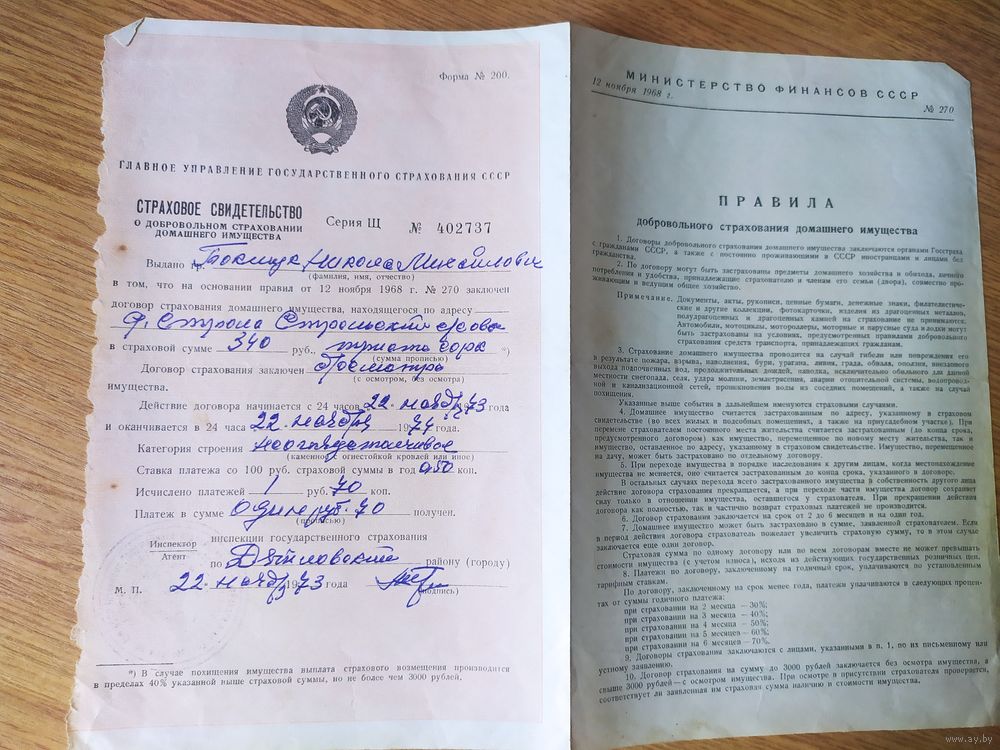 Форма № 200.
ГЛАВНОЕ УПРАВЛЕНИЕ ГОСУДАРСТВЕННОГО СТРАХОВАНИЯ СССР
СТРАХОВОЕ СВИДЕТЕЛЬСТВО
О ДОБРОВОЛЬНОМ СТРАХОВАНИИ
ДОМАШНЕГО ИМУЩЕСТВА
Серия Щ № 402737
Выдано гр. Николай Михайлович
(фамилия, имя, отчество)
в том, что на основании правил от 12 ноября 1968 г. № 270 заключен
договор страхования домашнего имущества, находящегося по адресу
д.
в страховой сумме 340 руб., триста сорок *)
(сумма прописью)
Договор страхования заключен
(с осмотром, без осмотра)
имущества.
Действие договора начинается с 24 часов 22 ноября 1973 года
и оканчивается в 24 часа 22 ноября 1974 года.
Категория строения
(каменной, огнестойкой кровлей или иное)
Ставка платежа со 100 руб. страховой суммы в год 0,50 коп.
Исчислено платежей 1 руб. 70 коп.
Платеж в сумме один руб. 70 получен.
(прописью)
Инспектор
Агент
инспекции государственного страхования
по Дятловскому району (городу)
22 ноября 1973 года
(подпись)
М. П.
*) В случае похищения имущества выплата страхового возмещения производится
в пределах 40% указанной выше страховой суммы, но не более чем 3000 рублей.
МИНИСТЕРСТВО ФИНАНСОВ СССР
12 ноября 1968 г.
№ 270
ПРАВИЛА
добровольного страхования домашнего имущества
1. Договоры добровольного страхования домашнего имущества заключаются органами Госстраха
с гражданами СССР, а также с постоянно проживающими в СССР иностранцами и лицами без
гражданства.
2. По договору могут быть застрахованы предметы домашнего хозяйства и обихода, личного
потребления и удобства, принадлежащие страхователю и членам его семьи (двора), совместно про-
живающим и ведущим общее хозяйство.
Примечание. Документы, акты, рукописи, ценные бумаги, денежные знаки, филателистиче-
ские и другие коллекции, фотокарточки, изделия из драгоценных металлов,
полудрагоценных и драгоценных камней на страхование не принимаются.
Автомобили, мотоциклы, мотороллеры, моторные и парусные суда и лодки могут
быть застрахованы на условиях, предусмотренных правилами добровольного
страхования средств транспорта, принадлежащих гражданам.
3. Страхование домашнего имущества проводится на случай гибели или повреждения его
в результате пожара, взрыва, наводнения, бури, урагана, ливня, града, обвала, оползня, внезапного
выхода подпочвенных вод, продолжительных дождей, паводка, исключительно обильного для данной
местности снегопада, селя, удара молнии, землетрясения, аварии отопительной системы, водопровод-
ной и канализационной сетей, проникновения воды из соседних помещений, а также на случай
похищения.
Указанные выше события в дальнейшем именуются страховыми случаями.
4. Домашнее имущество считается застрахованным по адресу, указанному в страховом
свидетельстве (во всех жилых и подсобных помещениях, а также на приусадебном участке). При
перемене страхователем постоянного места жительства считается застрахованным (до конца срока,
предусмотренного договором) как имущество, перемещенное по новому месту жительства, так и
имущество, оставленное по адресу, указанному в страховом свидетельстве. Имущество, перемещенное
на дачу, может быть застраховано по отдельному договору.
5. При переходе имущества в порядке наследования к другим лицам, когда местонахождение
имущества не меняется, оно считается застрахованным до конца срока, указанного в договоре.
В остальных случаях перехода всего застрахованного имущества в собственность другого лица
действие договора страхования прекращается, а при переходе части имущества договор сохраняет
силу только в отношении имущества, оставшегося у страхователя. При прекращении действия
договора как полностью, так и частично возврат страховых платежей не производится.
6. Договор страхования заключается на срок от 2 до 6 месяцев и на один год.
7. Домашнее имущество может быть застраховано в сумме, заявленной страхователем. Если
в период действия договора страхователь пожелает увеличить страховую сумму, то в этом случае
заключается еще один договор.
Страховая сумма по одному договору или по всем договорам вместе не может превышать
стоимости имущества (с учетом износа), исходя из действующих государственных розничных цен.
8. Платежи по договору, заключенному на годичный срок, уплачиваются по установленным
тарифным ставкам.
По договору, заключенному на срок менее года, платежи уплачиваются в следующих процен-
тах от суммы годичного платежа:
при страховании на 2 месяца — 30%;
при страховании на 3 месяца — 40%;
при страховании на 4 месяца — 50%;
при страховании на 5 месяцев — 60%;
при страховании на 6 месяцев — 70%.
9. Договоры страхования заключаются с лицами, указанными в п. 1, по их письменному или
устному заявлению.
10. Договор страхования на сумму до 3000 рублей заключается без осмотра имущества, а
свыше 3000 рублей — с осмотром имущества. При осмотре в присутствии страхователя проверяется,
соответствует ли заявленная им страховая сумма наличию и стоимости имущества.
www.ay.by